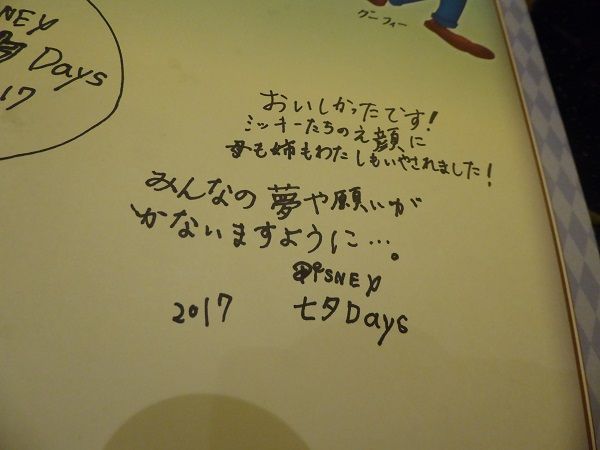 グーフィー
SNEY
夕 Days
17
おいしかったです!
ミッキーたちのえ顔に
母も姉もわたしもいやされました!
みんなの夢や願いが
かないますように…。
DiSNEY
2017 七夕Days